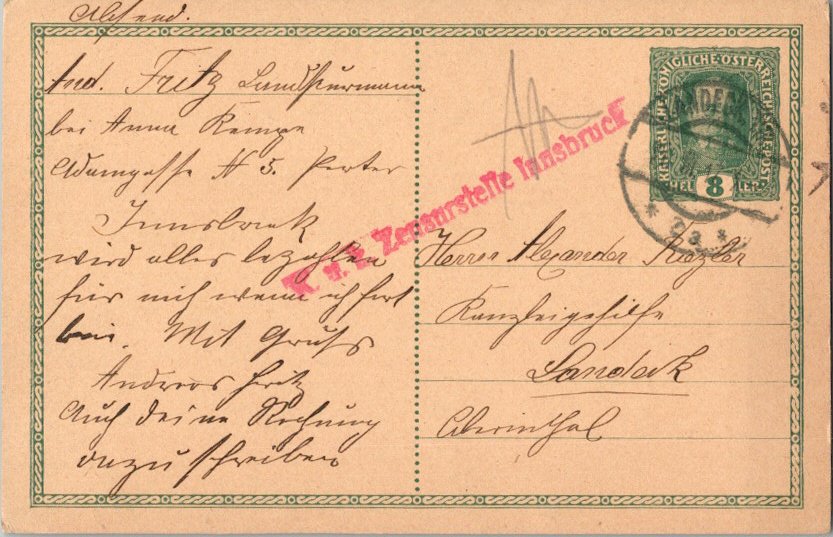 Absend.
And. Fritz Landsturmann
bei Anna Kempe
Adamgasse N 5. Parter
Innsbruck
wird alles bezahlen
für mich wenn ich fort
bin. Mit Gruss
Andreas Fritz
Auch deine Rechnung
anzuschreiben
K. u. k. Zensurstelle Innsbruck
KAISERLICHE KÖNIGLICHE ÖSTERREICHISCHE POST
8
HELLER
LANDECK
* 2a *
Herrn Alexander
Kanzleigehilfe
Landeck
Oberinthal